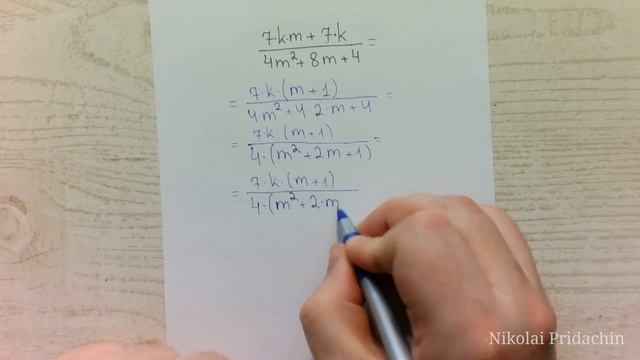 7·k·m + 7·k
4m²+8m+4 =
= 7·k·(m+1)
4m²+4·2·m+4 =
= 7·k·(m+1)
4·(m²+2m+1) =
= 7·k·(m+1)
4·(m²+2·m
Nikolai Pridachin